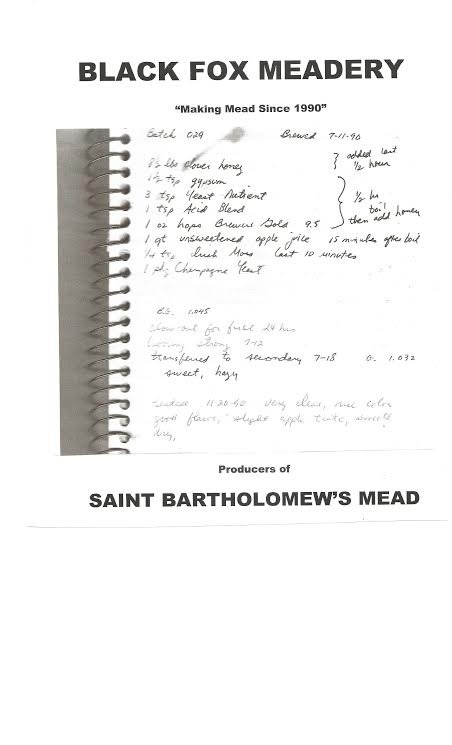 BLACK FOX MEADERY
"Making Mead Since 1990"
Batch 029 Brewed 7-11-90
8½ lbs clover honey } added last ½ hour
1½ tsp gypsum
3 tsp Yeast Nutrient } ½ hr boil then add honey
1 tsp Acid Blend
1 oz hops Brewers Gold 9.5
1 qt unsweetened apple juice 15 minutes after boil
¼ tsp Irish Moss last 10 minutes
1 pkg Champagne Yeast
1.045
for first 24 hrs
strong 7-12
transferred to secondary 7-18 G. 1.032
sweet, hazy
tasted 11-20-90 Very clear, nice color
good flavor, slight apple taste, smooth
dry,
Producers of
SAINT BARTHOLOMEW'S MEAD